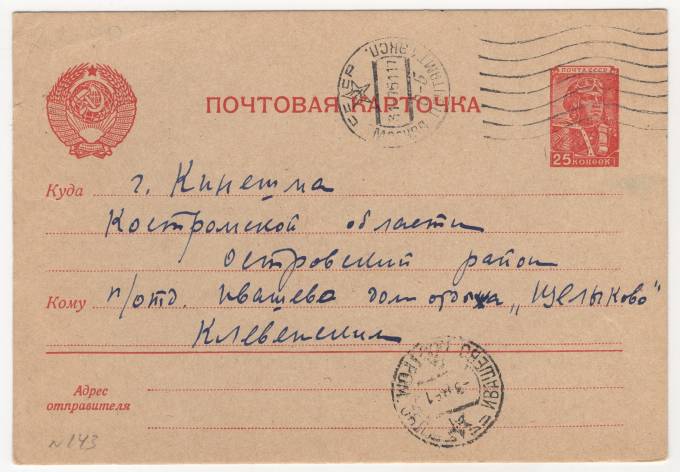 ПОЧТОВАЯ КАРТОЧКА
ПОЧТА СССР
25 КОПЕЕК
СССР
МОСКВА
Куда г. Кинешма
Костромской области
Островский район
Кому п/отд. Ивашево дом отдыха „Щелыково"
Клевенским
ИВАШЕВО КОСТРОМ.
Адрес
отправителя
№ 143